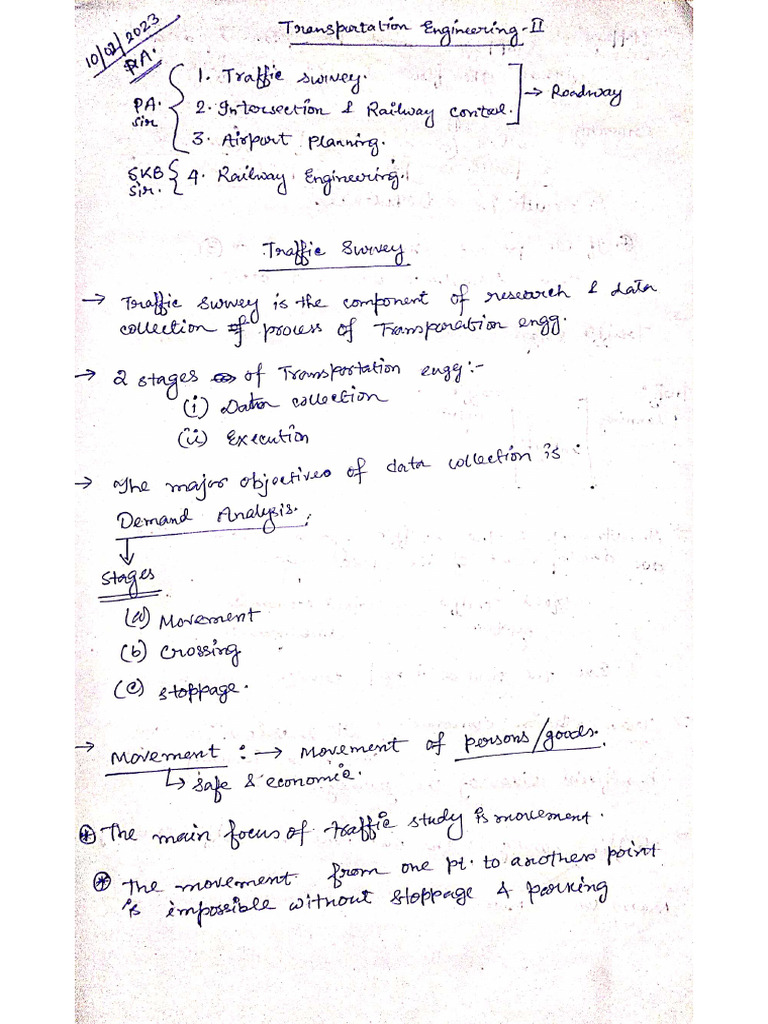 Transportation Engineering-II
10/02/2023
PA.
1. Traffic survey.
PA. sir
2. Intersection & Railway control.
→ Roadway
3. Airport Planning.
SKB sir.
4. Railway Engineering.
Traffic Survey
→ Traffic survey is the component of research & data
collection of process of Transporation engg.
→ 2 stages of Transportation engg:-
(i) Data collection
(ii) Execution
→ The major objectives of data collection is :
Demand Analysis.
Stages
(a) Movement
(b) Crossing
(c) stoppage.
→ Movement : → Movement of persons/goods.
↳ safe & economic.
⊛ The main focus of traffic study is movement.
⊛ The movement from one pt. to another point
is impossible without stoppage & parking